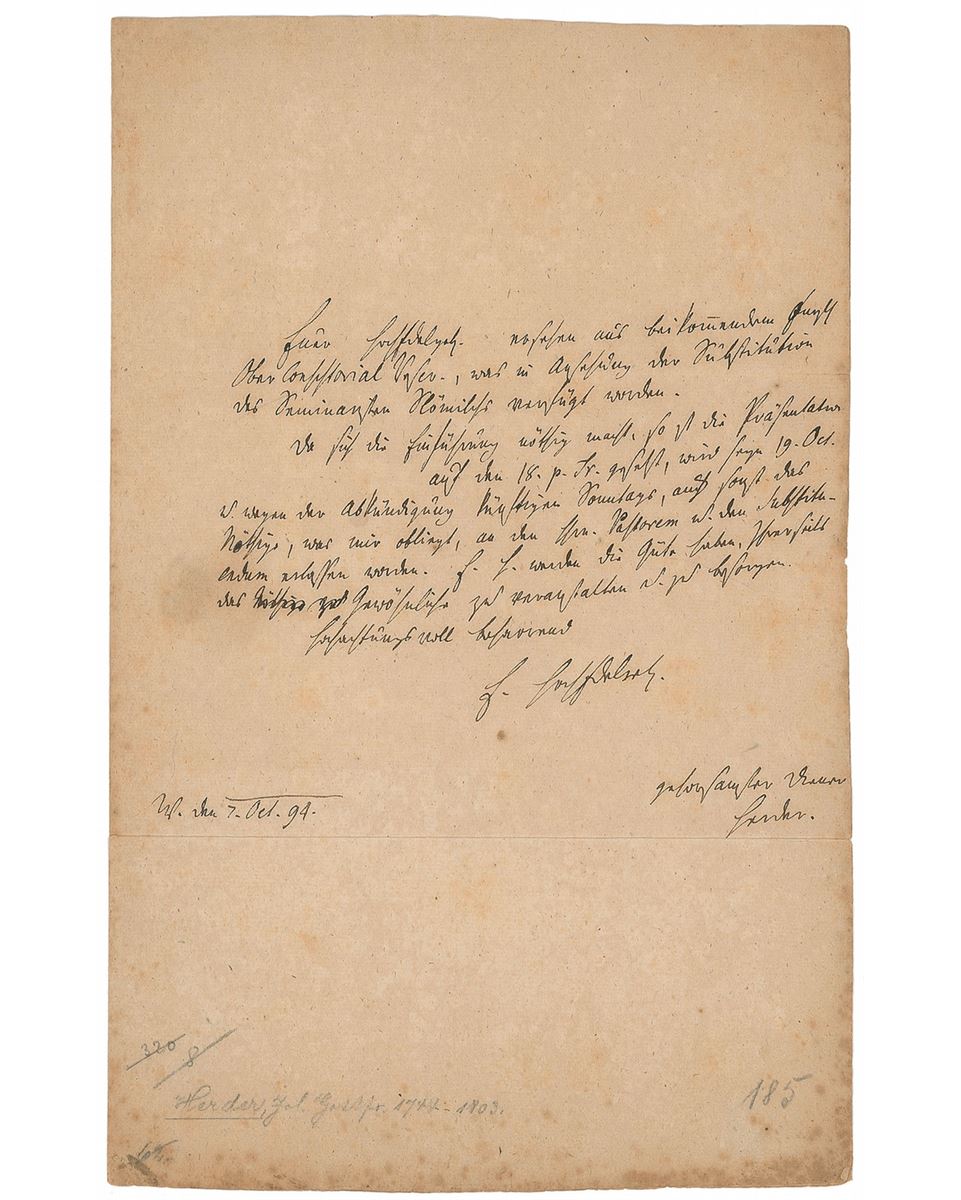 Euer HochEdelgeb. ersehen aus beikommendem
Ober Consistorial Rescr., was in Ansehung der Substitution
des Seminaristen Römilchs verfügt worden.
Da sich die Einführung nöthig macht, so ist die Präsentation
auf den 18. p. Tr. gesetzt, wird seyn 19. Oct.
u. wegen der Abkündigung künftigen Sonntags, auch sonst das
Nöthige, was mir obliegt, an den Hrn. Pastorem u. den Substitu-
endum erlassen worden. E. H. werden die Güte haben, Ihrerseits
das Gewöhnliche zu veranstalten u. zu besorgen.
Hochachtungsvoll beharrend
E. HochEdelgeb.
gehorsamster Diener
Herder.
W. den 7. Oct. 94.
320
8
Herder, Joh. Gottfr. 1744-1803.
185